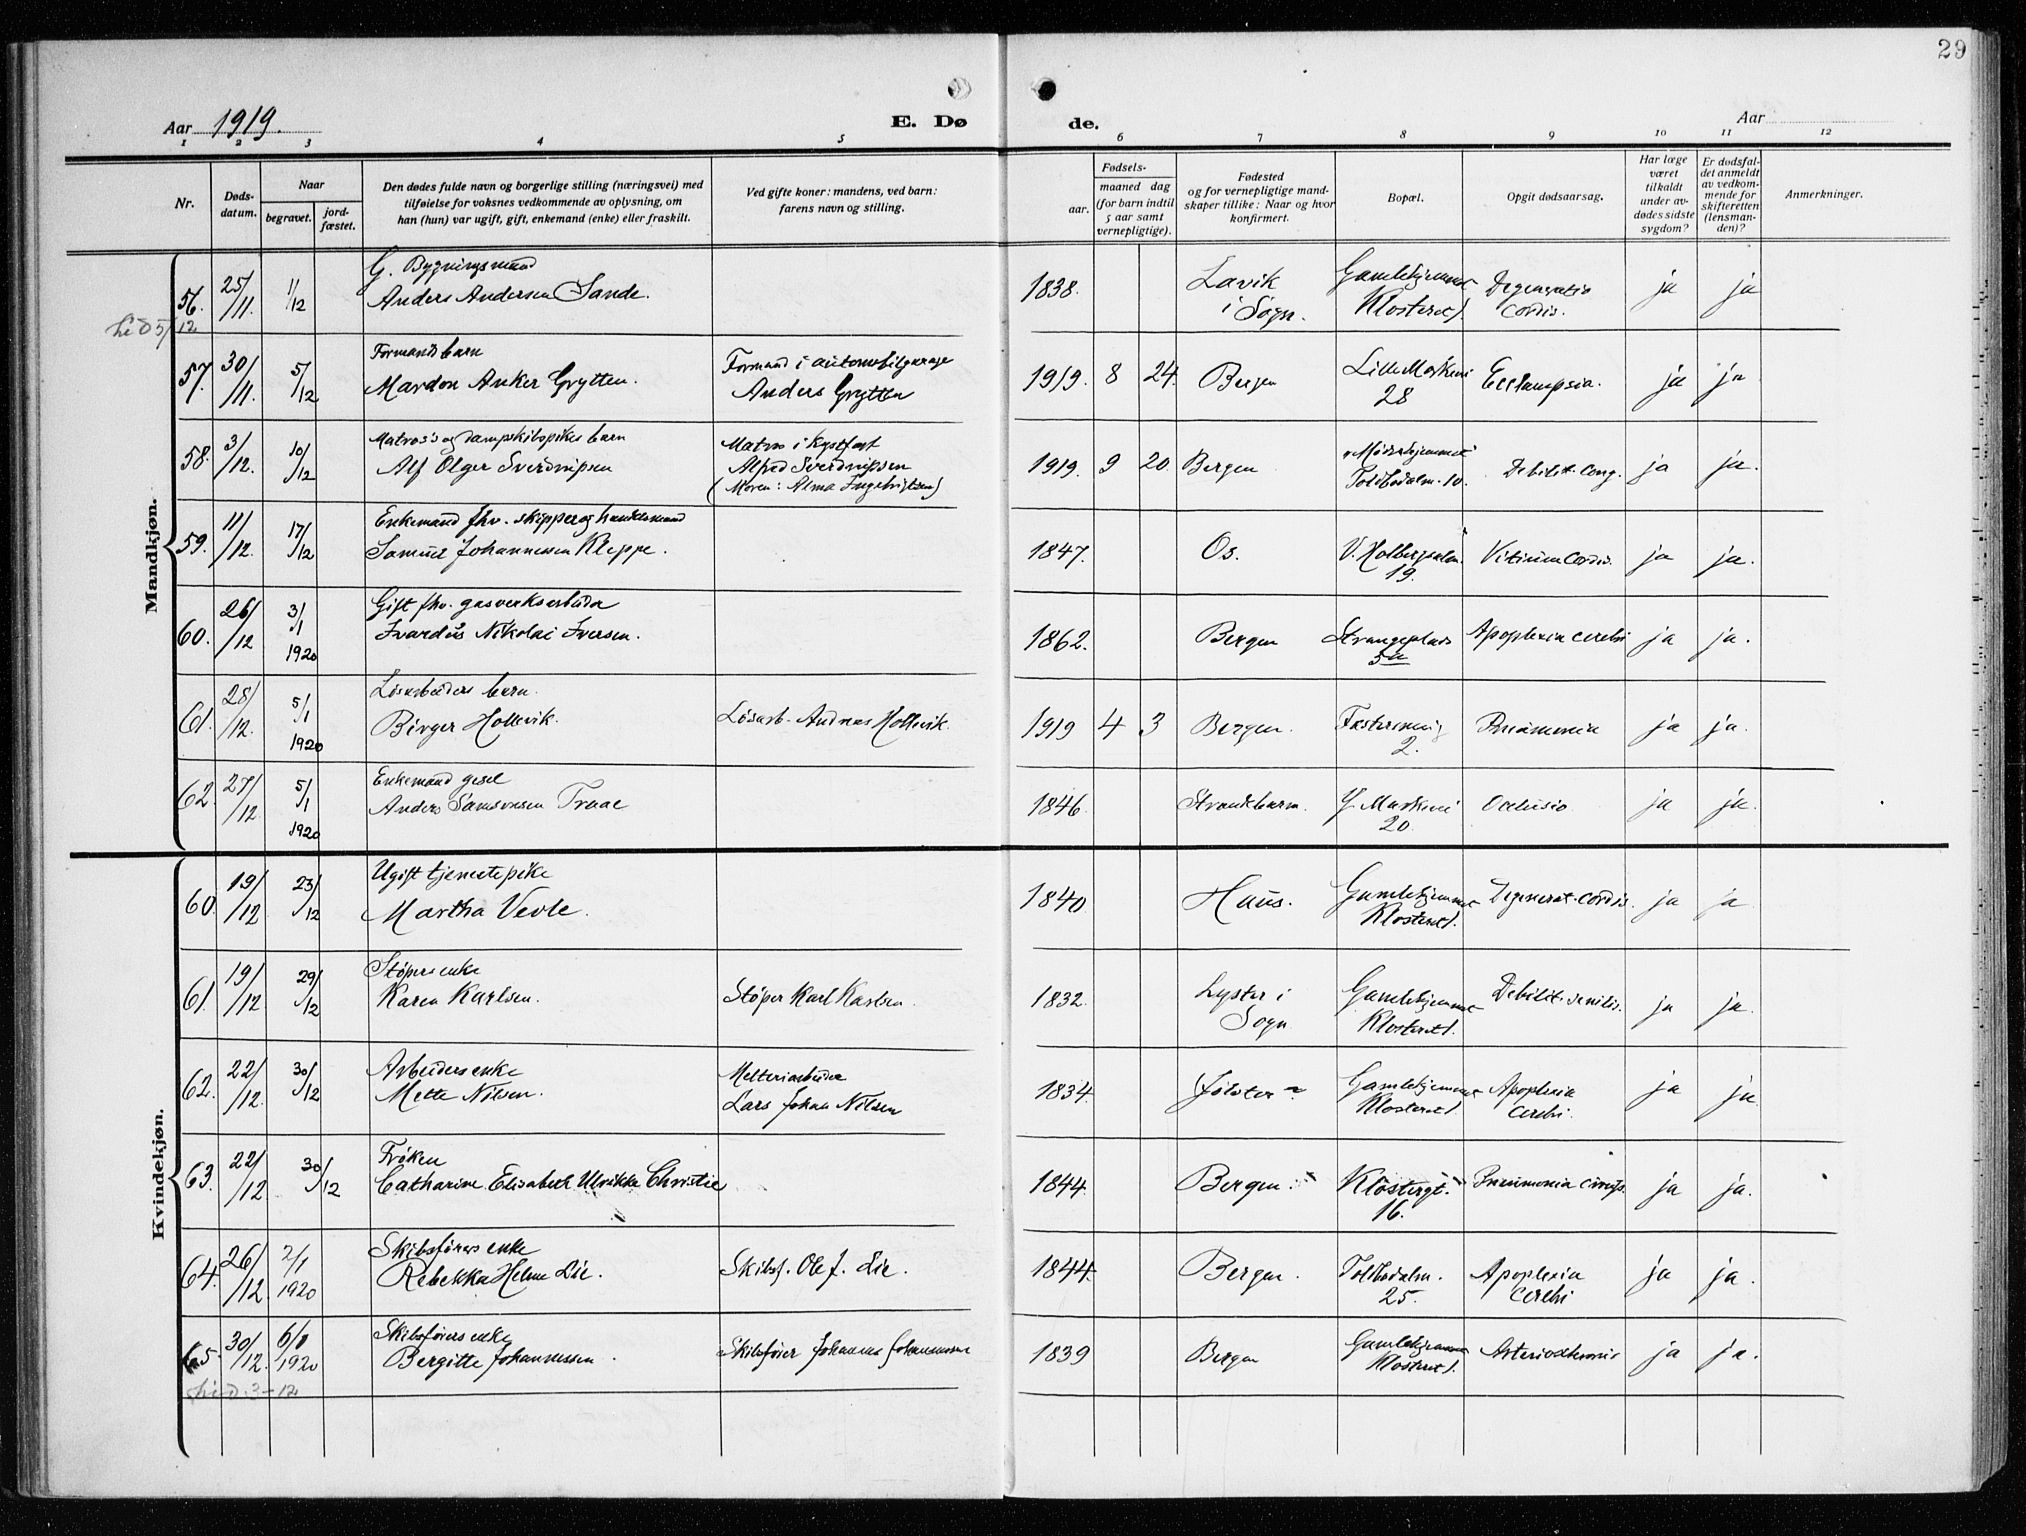 29
Aar 1919.
E. Dø
de.
Aar
1 2 3 4 5 6 7 8 9 10 11 12
Nr.
Døds-
datum.
Naar
begravet.
jord-
fæstet.
Den dødes fulde navn og borgerlige stilling (næringsvei) med
tilføielse for voksnes vedkommende av oplysning, om
han (hun) var ugift, gift, enkemand (enke) eller fraskilt.
Ved gifte koner: mandens, ved barn:
farens navn og stilling.
Fødsels-
aar.
maaned dag
(for barn indtil
5 aar samt
vernepligtige).
Fødested
og for vernepligtige mand-
skaper tillike: Naar og hvor
konfirmert.
Bopæl.
Opgit dødsaarsag.
Har læge
været
tilkaldt
under av-
dødes sidste
sygdom?
Er dødsfal-
det anmeldt
av vedkom-
mende for
skifteretten
(lensman-
den)?
Anmerkninger.
Mandkjøn.
56. 25/11. 1/12
G. Bygningsmand
Anders Andersen Sande.
1838.
Lavik
i Sogn.
Gamlehjemmet
Klosteret
Degeneratio
Cordis.
ja ja
5/12
57. 30/11. 5/12
Formands barn
Mardon Anker Grytten.
Formand i automobilgarage
Anders Grytten
1919. 8 24.
Bergen
Lille Markevei
28
Eclampsia.
ja ja
58. 3/12. 10/12
Matros's og dampskibspikes barn
Alf Olger Sverdrupsen
Matros i Kystfart
Alfred Sverdrupsen
(Moren: Alma Ingebrigtsen)
1919. 9 20.
Bergen
"Mødrehjemmet"
Toldbodalm. 10.
Debilit. Cong.
ja ja.
59. 11/12. 17/12
Enkemand fhv. skipper og handelsmand
Samuel Johannessen Kleppe.
1847.
Os.
V. Holbergsalm.
19.
Vitium Cordis.
ja ja.
60. 26/12 3/1
1920
Gift fhv. gasverksarbeider
Ivardius Nikolai Iversen.
1862.
Bergen
Strangeplads
5a
Apoplexia cerebri
ja ja.
61. 28/12. 5/1
1920
Løsarbeiders barn.
Birger Hollevik.
Løsarb. Andreas Hollevik.
1919 4 3
Bergen.
2.
Pneumonia
ja ja.
62. 27/12 5/1
1920
Enkemand gesel
Anders Samsonsen Traae
1846.
Strandebarm.
Y. Markevei
20.
Occlusio
ja ja.
Kvindekjøn.
60. 19/12 23/12
Ugift tjenestepike
Martha Vevle.
1840
Haus.
Gamlehjemmet
Klosteret.
Degenerat. cordis.
ja ja
61. 19/12. 29/12
Støpers enke
Karen Karlsen.
Støper Karl Karlsen.
1832.
Lyster i
Sogn
Gamlehjemmet
Klosteret.
Debilit. senilis.
ja ja.
62. 22/12. 30/12
Arbeiders enke
Mette Nilsen.
Melleriarbeider
Lars Johan Nilsen
1834.
Jølster
Gamlehjemmet
Klosteret.
Apoplexia
cerebri.
ja ja.
63. 22/12 30/12
Frøken
Catharine Elisabeth Ulrikke Christie
1844.
Bergen.
Klostergt.
16.
Pneumonia
ja ja.
64. 26/12. 2/1
1920
Skibsførers enke
Rebekka Helene Lie.
Skibsf. Ole J. Lie.
1844.
Bergen.
Toldbodalm.
25.
Apoplexia
cerebri
ja ja.
65. 30/12. 6/1
1920
Skibsførers enke
Bergitte Johannessen.
Skibsfører Johannes Johannessen
1839
Bergen
Gamlehjemmet
Klosteret.
Arteriosclerosis
ja ja.
3-12